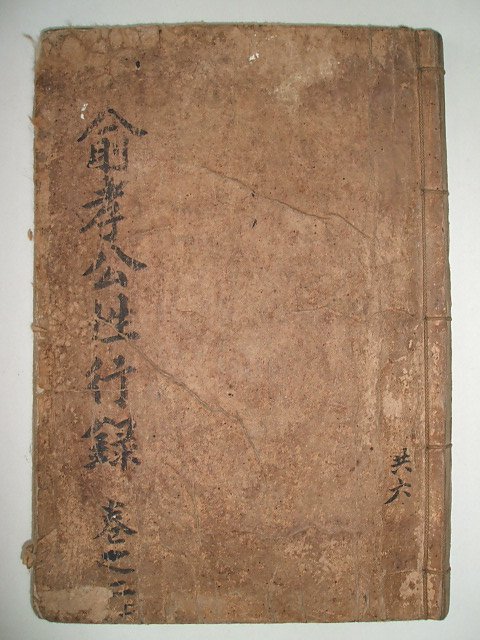 俞孝公性行錄 卷之二
共六